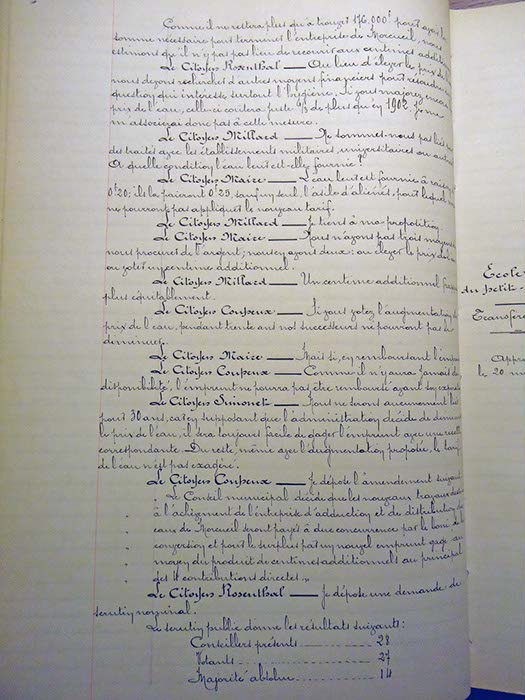 Comme il ne restera plus qu'à trouver 176.000f pour avoir la
somme nécessaire pour terminer l'entreprise de Morcueil, nous
estimons qu'il n'y a pas lieu de recourir aux centimes addition
Le Citoyen Rosenthal — Au lieu d'élever le prix de l'eau
nous devons rechercher d'autres moyens financiers pour résoudre
question qui intéresse surtout l'hygiène. Si vous majorez encore
prix de l'eau, celle-ci coûtera juste de plus qu'en 1902. Je ne
m'associerai donc pas à cette mesure.
Le Citoyen Millard — Ne sommes-nous pas liés par
des traités avec les établissements militaires, universitaires ou autres
A quelle condition l'eau leur est-elle fournie ?
Le Citoyen Maire — L'eau leur est fournie à raison
0f20; ils la paieront 0f25, sauf un seul, l'asile d'aliénés, pour lequel
ne pourrons pas appliquer le nouveau tarif.
Le Citoyen Millard — Je tiens à ma proposition
Le Citoyen Maire — Nous n'avons pas trois moyens
nous procurer de l'argent; nous en avons deux: ou élever le prix de l'eau
ou voter un centime additionnel.
Le Citoyen Millard — Un centime additionnel
plus équitablement.
Le Citoyen Coupeux — Si vous votez l'augmentation
prix de l'eau, pendant trente ans nos successeurs ne pourront pas
diminuer.
Le Citoyen Maire — Mais si, en remboursant l'emprunt
Le Citoyen Coupeux — Comme il n'y aura jamais de
disponibilité, l'emprunt ne pourra pas être remboursé avant son
Le Citoyen Guinonet — Nous ne serons aucunement liés
pour 30 ans, car en supposant que l'administration décide de diminuer
le prix de l'eau, il sera toujours facile de gager l'emprunt avec une recette
correspondante. Du reste, même avec l'augmentation proposée, le tarif
de l'eau n'est pas exagéré.
Le Citoyen Coupeux — Je dépose l'amendement suivant
„ Le Conseil municipal décide que les nouveaux travaux
„ à l'achèvement de l'entreprise d'adduction et de distribution
„ eaux de Morcueil seront payés à due concurrence par le boni de
„ conversion et pour le surplus par un nouvel emprunt gagé au
„ moyen du produit de centimes additionnels au principal
„ des 4 contributions directes „
Le Citoyen Rosenthal — Je dépose une demande de
scrutin nominal.
Le scrutin public donne les résultats suivants:
Conseillers présents 28
Votants 27
Majorité absolue 14
École
du Petit-
Transfer
Appro
le 20 m